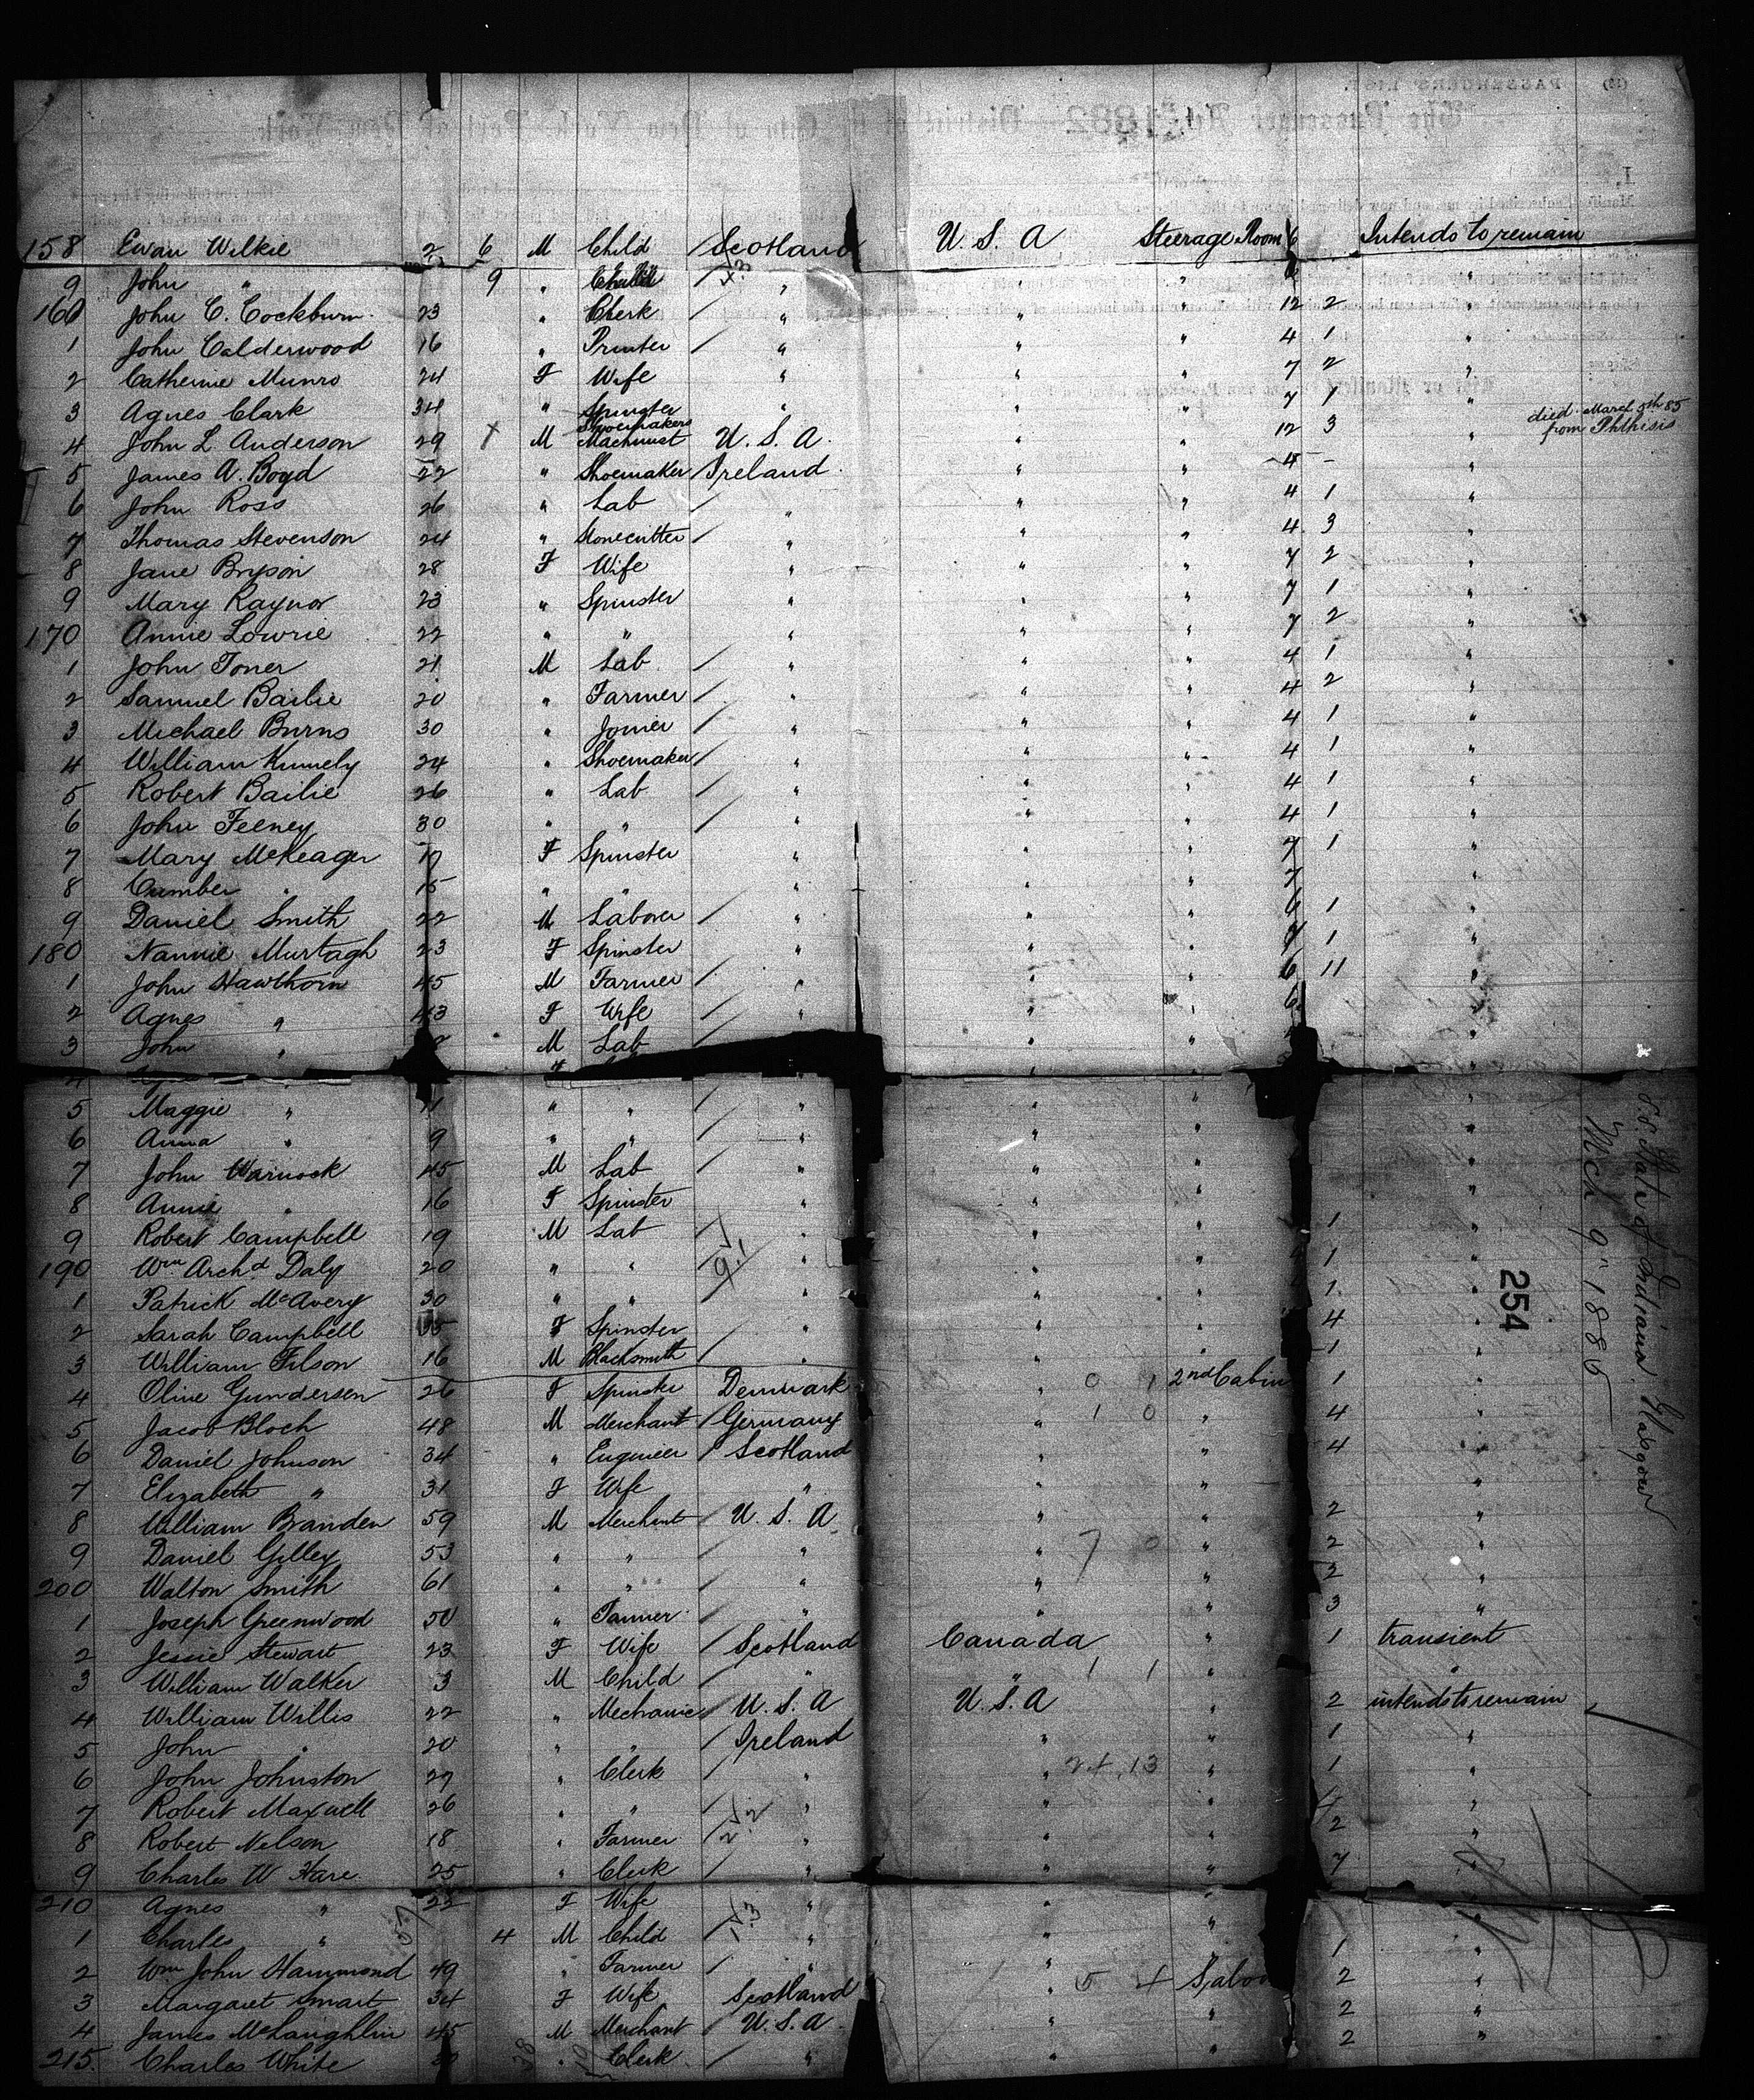 158 Ewan Wilkie 2 6 M Child / Scotland U. S. A Steerage Room 6 Intends to remain
9 John " 9 " Child / " " " 6 "
160 John C. Cockburn 23 " Clerk / " " " 12 2 "
1 John Calderwood 16 " Printer / " " " 4 1 "
2 Catherine Munro 24 F Wife " " " 7 2 "
3 Agnes Clark 34 " Spinster " " " 7 1 "
4 John L. Anderson 29 M Shoemakers Machinist U. S. A. " " 12 3 " died March 5th 85 from Phthisis
5 James A. Boyd 22 " Shoemaker / Ireland " " 4 - "
6 John Ross 26 " Lab / " " " 4 1 "
7 Thomas Stevenson 24 " Stonecutter / " " " 4 3 "
8 Jane Bryson 28 F Wife " " " 7 2 "
9 Mary Raynor 23 " Spinster " " " 7 1 "
170 Annie Lowrie 22 " " " " " 7 2 "
1 John Toner 21 M Lab / " " " 4 1 "
2 Samuel Bailie 20 " Farmer / " " " 4 2 "
3 Michael Burns 30 " Joiner / " " " 4 1 "
4 William Kinnely 24 " Shoemaker / " " " 4 1 "
5 Robert Bailie 26 " Lab / " " " 4 1 "
6 John Feeney 30 " " / " " " 4 1 "
7 Mary McKeager F Spinster " " " 7 1 "
8 Cumber " 15 " " " " " 7 "
9 Daniel Smith 22 M Laborer / " " " 6 1 "
180 Nannie Murtagh 23 F Spinster " " " 7 1 "
1 John Hawthorn 45 M Farmer / " " " 6 11 "
2 Agnes " 43 F Wife / " " " 6 "
3 John " M Lab / " " " "
4
5 Maggie " 11 " " / " " " "
6 Anna " 9 " " / " " " "
7 John Warnock 45 M Lab / " " " "
8 Annie " 16 F Spinster " " " "
9 Robert Campbell 19 M Lab / " " " 1 "
190 Wm Archd Daly 20 " " / " " " 1 "
1 Patrick McAvery 30 " " / " " " 1 "
2 Sarah Campbell F Spinster / " " " 4 "
3 William Filson 16 M Blacksmith / " " " 1 "
4 Oline Gundersen 26 F Spinster Denmark " 0 1 2nd Cabin 1 "
5 Jacob Bloch 48 M Merchant / Germany " 1 0 " 4 "
6 Daniel Johnson 34 " Engineer / Scotland " " 4 "
7 Elizabeth " 31 F Wife " " " "
8 William Branden 59 M Merchant / U. S. A " " 2 "
9 Daniel Gilley 53 " " / " " 7 0 " 2 "
200 Walton Smith 61 " " / " " " 2 "
1 Joseph Greenwood 50 " Tanner / " " " 3 "
2 Jessie Stewart 23 F Wife / Scotland Canada " 1 transient
3 William Walker 3 M Child / " " 1 1 " "
4 William Willis 22 " Mechanic / U. S. A U. S. A " 2 intends to remain
5 John " 20 " " / Ireland " " 1 "
6 John Johnston 27 " Clerk / " " 24 13 " 1 "
7 Robert Maxwell 26 " " / " " " "
8 Robert Nelson 18 " Farmer / " " " 2 "
9 Charles W Hare 25 " Clerk / " " " 7 "
210 Agnes " 22 F Wife " " " "
1 Charles " 4 M Child / " " " "
2 Wm John Hammond 49 " Farmer / " " 5 4 Saloon 1 "
3 Margaret Smart 34 F Wife Scotland " " 2 "
4 James McLaughlin 45 M Merchant / U. S. A. " " 2 "
215. Charles White " Clerk / " " " 2 "
S.S. State of Indiana Glasgow
Mch 9" 1885
254